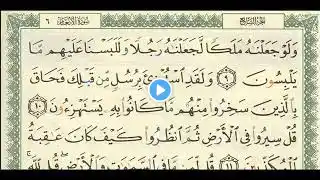 الجزء السابع ٦ سورة الأنعام
وَلَوْ جَعَلْنَٰهُ مَلَكًا لَّجَعَلْنَٰهُ رَجُلًا وَلَلَبَسْنَا عَلَيْهِم مَّا
يَلْبِسُونَ ٩ وَلَقَدِ ٱسْتُهْزِئَ بِرُسُلٍ مِّن قَبْلِكَ فَحَاقَ
بِٱلَّذِينَ سَخِرُوا۟ مِنْهُم مَّا كَانُوا۟ بِهِۦ يَسْتَهْزِءُونَ ١٠
قُلْ سِيرُوا۟ فِى ٱلْأَرْضِ ثُمَّ ٱنظُرُوا۟ كَيْفَ كَانَ عَٰقِبَةُ
ٱلْمُكَذِّبِينَ ١١ قُل لِّمَن مَّا فِى ٱلسَّمَٰوَٰتِ وَٱلْأَرْضِ قُل لِّلَّهِ